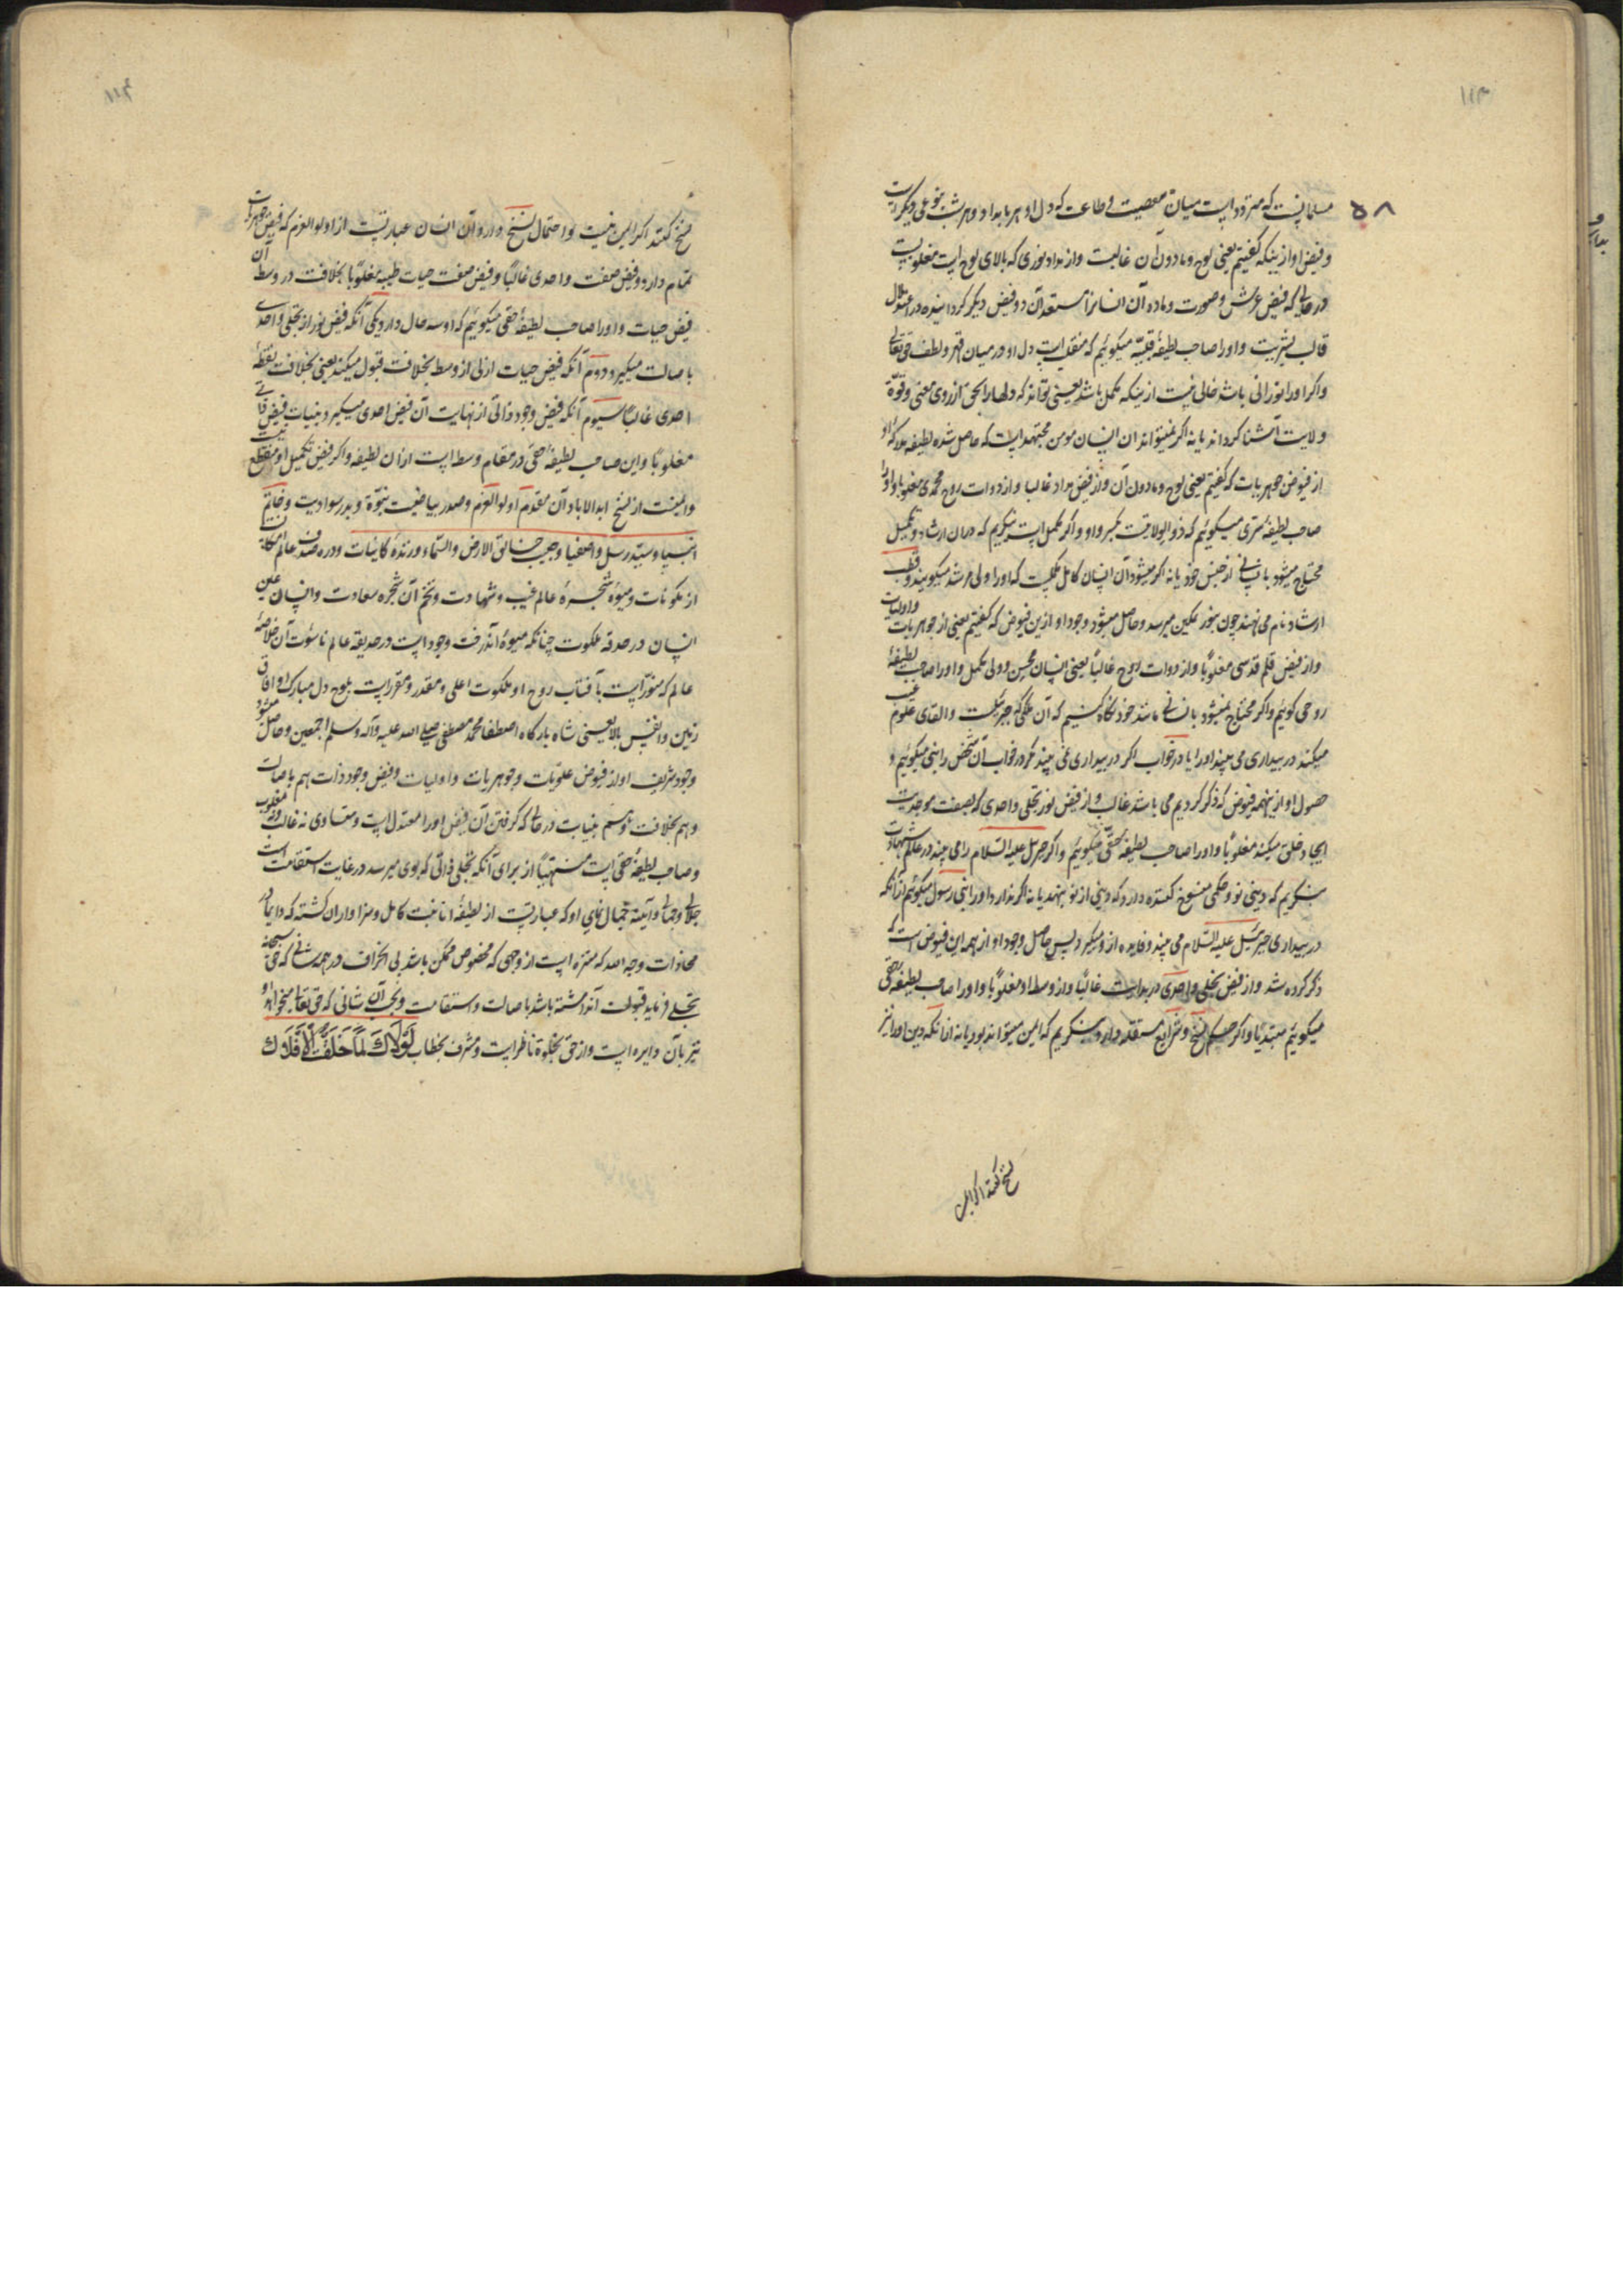 ١١٣
٥٨
مسلمانیست که متردد است میان معصیت و طاعت که دل او هر بامداد و هر شب بنوعی دیگر است
و فیض او ازینکه گفتیم یعنی لوح و مادون آن غالبست و از مداد نوری که بالای لوح است مغلوبست
در حالی که فیض عرش و صورت و ماده آن انسانرا مستعد آن دو فیض دیگر گردانیده در اعتدال
قالب بشریت و او را صاحب لطیفهٔ قلبیه میگوئیم که منقلب است دل او در میان قهر و لطف حق تعالی
واگر او را نورانی باشد خالی نیست ازینکه مکمل باشد یعنی تواند که دلها را بحق از روی معنی و قوة
ولایت آشنا گرداند یا نه اگر نمیتواند آن انسان مومن مجتهد است که حاصل شده لطیفه مدرکه او
از فیوض جوهریات که گفتیم یعنی لوح و مادون آن و از فیض مداد غالبا و از دوات روح محمدی مغلوبا و او را
صاحب لطیفهٔ سری میگوئیم که ذو الولایت بکسر واو و اگر مکمل است بنگریم که در آن ارشاد و تکمیل
محتاج میشود بانسانی از جنس خود یا نه اگر میشود آن انسان کامل مکملست که او را ولی مرشد میگویند و قطب
ارشاد نام می نهند چون بنور تمکین میرسد و حاصل میشود وجود او ازین فیوض که گفتیم یعنی از جوهریات و اولیات
و از فیض قلم قدسی مغلوبا و از دوات روح غالبا یعنی انسان محسن و ولی مکمل و او را صاحب لطیفهٔ
روحی گوئیم و اگر محتاج نمیشود بانسانی مانند خود نگاه کنیم که آن ملکی که جبرئیلست و القای علوم غیب
میکند در بیداری می بیند او را یا در خواب اگر در بیداری نمی بیند مگر در خواب آن شخص را نبی میگوئیم و
حصول او از ینهمه فیوض که ذکر کردیم می باشد غالبا و از فیض نور تجلی واحدی که بصفت موجدیت
ایجاد خلق میکند مغلوبا و او را صاحب لطیفه خفی میگوئیم و اگر جبرئیل علیه السلام را می بیند در عالم شهادت
بنگریم که دینی نو و حکمی منسوخ کننده دارد که دینی از نو بنهد یا نه اگر ندارد او را نبی رسول میگوئیم از آنکه
در بیداری جبرئیل علیه السلام می بیند و فایده ازو میگیرد پس حاصل وجود او از همه این فیوض است که
ذکر کرده شد و از فیض تجلی واحدی در بدایت غالبا و از وسط او مغلوبا و او را صاحب لطیفه خفی
میگوئیم مبتدیا و اگر حکم نسخ و شرایع مستقله دارد بنگریم که این میتواند بود یا نه از آنکه دین او را نیز
نسخ کنند اگر این
١١٤
نسخ کنند اگر این نیست و احتمال نسخ دارد آن انسان عبارتیست از اولو العزم که فیض جوهریات
تمام دارد و فیض صفت واحدی غالبا و فیض صفت حیات طیبه مغلوبا بخلافت در وسط آن
فیض حیات و او را صاحب لطیفهٔ حقی میگوئیم که او سه حال دارد یکی آنکه فیض نور از تجلی واحدی
باصالت میگیرد دوم آنکه فیض حیات ازلی از وسط بخلافت قبول میکند یعنی بخلافت نقطهٔ
احدی غالبا سیوم آنکه فیض وجود ذاتی از نهایت آن فیض احدی میگیرد بنیابت فیض ذاتی
مغلوبا و این صاحب لطیفهٔ حقی در مقام وسط است ازان لطیفه و اگر فیض تکمیل او منقطع نیست
و ایمنست از نسخ ابد الاباد آن مقدم اولو العزم و صدر بیاضیت نبوة و بدر سوادیت و خاتم
انبیاء و سید رسل و اصفیا و حبیب خالق الارض والسماء و زبدهٔ کاینات و دره صدف عالم امکان
از مکونات و میوه شجرهٔ عالم غیب و شهادت و تخم آن شجره سعادت و انسان عین
انسان در حدقه ملکوت چنانکه میوهٔ آندرخت وجود است در حدیقه عالم ناسوت آن خلاصهٔ
عالم که منور است بآفتاب روح او ملکوت اعلی و مقدر و مقرر است بلوح دل مبارک او آفاق
زمین و انفس بالا یعنی شاه بارگاه اصطفا محمد مصطفی صلی الله علیه وآله وسلم اجمعین و حاصل میشود
وجود شریف او از فیوض علویات و جوهریات و اولیات و فیض وجود ذات هم باصالت
و هم بخلافت و هم بنیابت در حالی که گرفتن آن فیض او را معتدل است و متساوی نه غالب و نه مغلوب
و صاحب لطیفهٔ حقی است منتهیا از برای آنکه تجلی ذاتی که بوی میرسد در غایت استقامت است
جلالی و جمالی و آینهٔ جمال نمای او که عبارتیست از لطیفهٔ انانیت کامل و سزاوار آن گشته که دایما در
محاذات وجه الله که منزه است از وجهی که مخصوص ممکن باشد بی انحراف در هر شانی که حق سبحانه
تجلی فرماید قبولت آنرا داشته باشد باصالت و استقامت و بحسب آن شانی که حق تعالی میخواهد او
نیز بآن دایره است و از حق بجلوه ناظر است و مشرف بخطاب لَوْلَاكَ لَمَا خَلَقْتُ الْأَفْلَاكَ